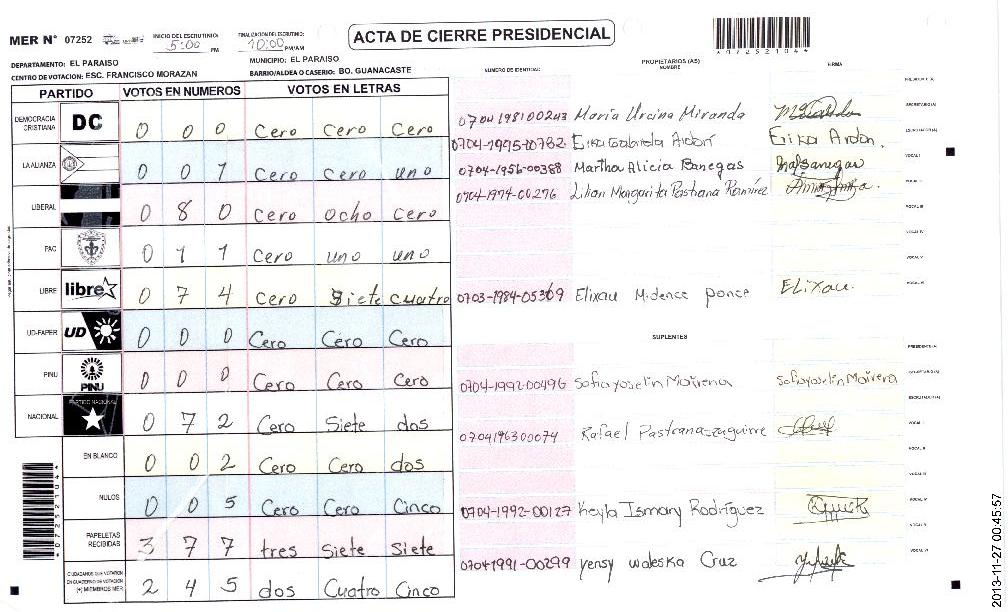 MER N° 07252 INICIO DEL ESCRUTINIO: 5:00 PM FINALIZACION DEL ESCRUTINIO: 10:00 PM/AM ACTA DE CIERRE PRESIDENCIAL
DEPARTAMENTO: EL PARAISO MUNICIPIO: EL PARAISO
CENTRO DE VOTACION: ESC. FRANCISCO MORAZAN BARRIO/ALDEA O CASERIO: BO. GUANACASTE
PARTIDO VOTOS EN NUMEROS VOTOS EN LETRAS
NUMERO DE IDENTIDAD PROPIETARIOS (AS) NOMBRE FIRMA
DEMOCRACIA CRISTIANA DC 0 0 0 Cero Cero Cero
LA ALIANZA 0 0 1 Cero Cero uno
LIBERAL 0 8 0 Cero Ocho Cero
PAC 0 1 1 Cero uno uno
LIBRE libre 0 7 4 Cero Siete cuatro
UD-FAPER UD 0 0 0 Cero Cero Cero
PINU PINU 0 0 0 Cero Cero Cero
NACIONAL PARTIDO NACIONAL 0 7 2 Cero Siete dos
EN BLANCO 0 0 2 Cero Cero dos
NULOS 0 0 5 Cero Cero Cinco
PAPELETAS RECIBIDAS 3 7 7 tres Siete Siete
CIUDADANOS QUE VOTARON EN CUADERNO DE VOTACION (+) MIEMBROS MER 2 4 5 dos Cuatro Cinco
0704198100243 Maria Ursina Miranda
0704-1995-00782 Erika Gabriela Ardon Erika Ardon.
0704-1956-00388 Martha Alicia Banegas
0704-1974-00276 Lilian Margarita Pastrana Ramírez
0703-1984-05369 Elixau Midence ponce Elixau.
SUPLENTES
0704-1992-00496 Sofia yoselin Mairena Sofia yoselin Mairena
0704196300074 Rafael Pastrana
0704-1992-00127 Keyla Ismary Rodríguez
07041991-00299 yensy waleska Cruz
2013-11-27 00:45:57